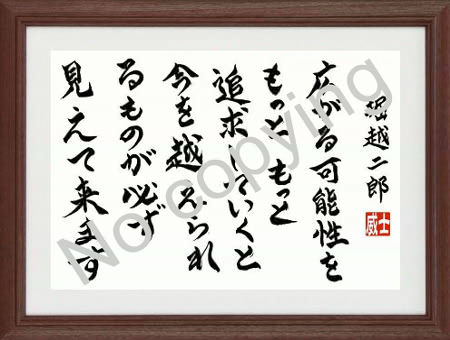 堀越二郎
広がる可能性を
もっと もっと
追求していくと
今を越えられ
るものが必ず
見えて来ます
威士
No copying